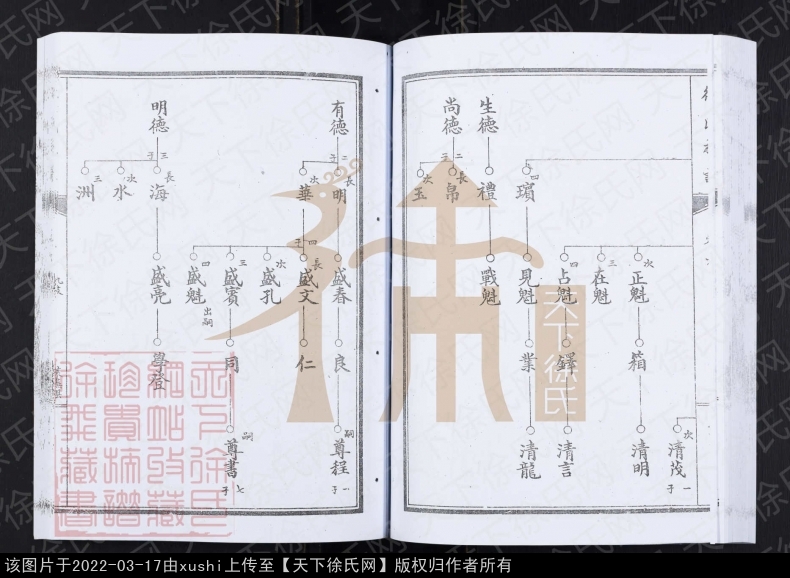 次
清茂
一子
次
正魁
箱
清明
三
在魁
四
占魁
鐸
清言
四
璸
見魁
業
清龍
生德
禮
戰魁
尚德
二子
長
帛
次
玉
有德
二子
長
明
盛春
良
嗣
尊程
一子
次
華
四子
長
盛文
仁
次
盛孔
三
盛賓
同
嗣
尊書
七子
四
盛魁
出嗣
明德
三子
長
海
盛亮
學登
次
水
三
洲
天下徐氏
该图片于2022-03-17由xushi上传至【天下徐氏网】版权归作者所有